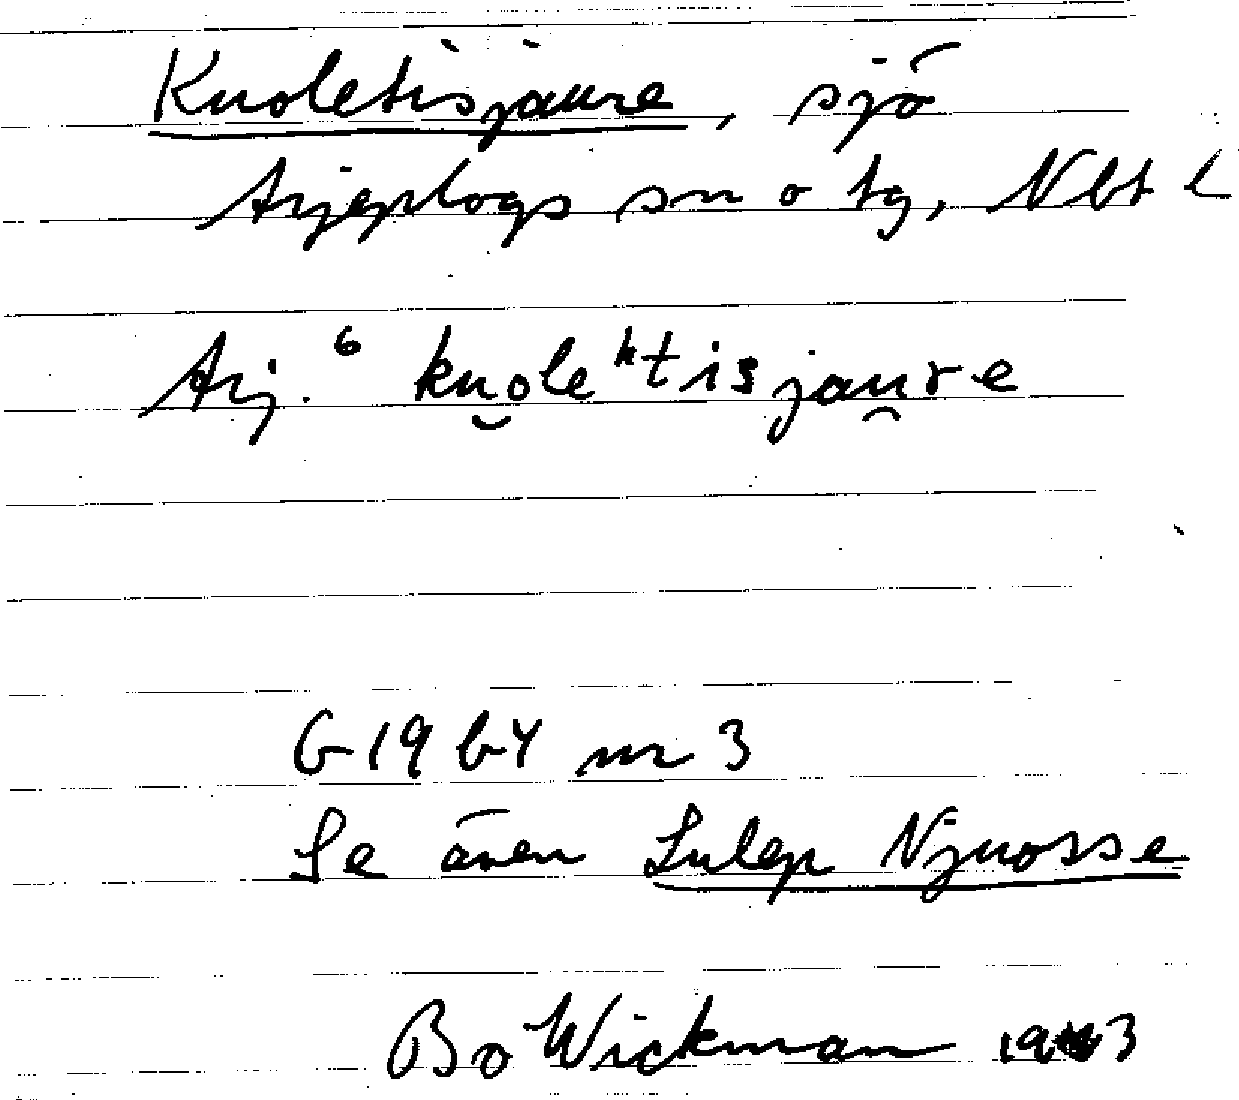 Kuoletisjaure, sjö
Arjeplogs sn o tg, Nbt l
Arj. ⁶ ku̯oleʰtisjau̯re
G 1964 nr 3
Se även Lulep Njuosse
Bo Wickman